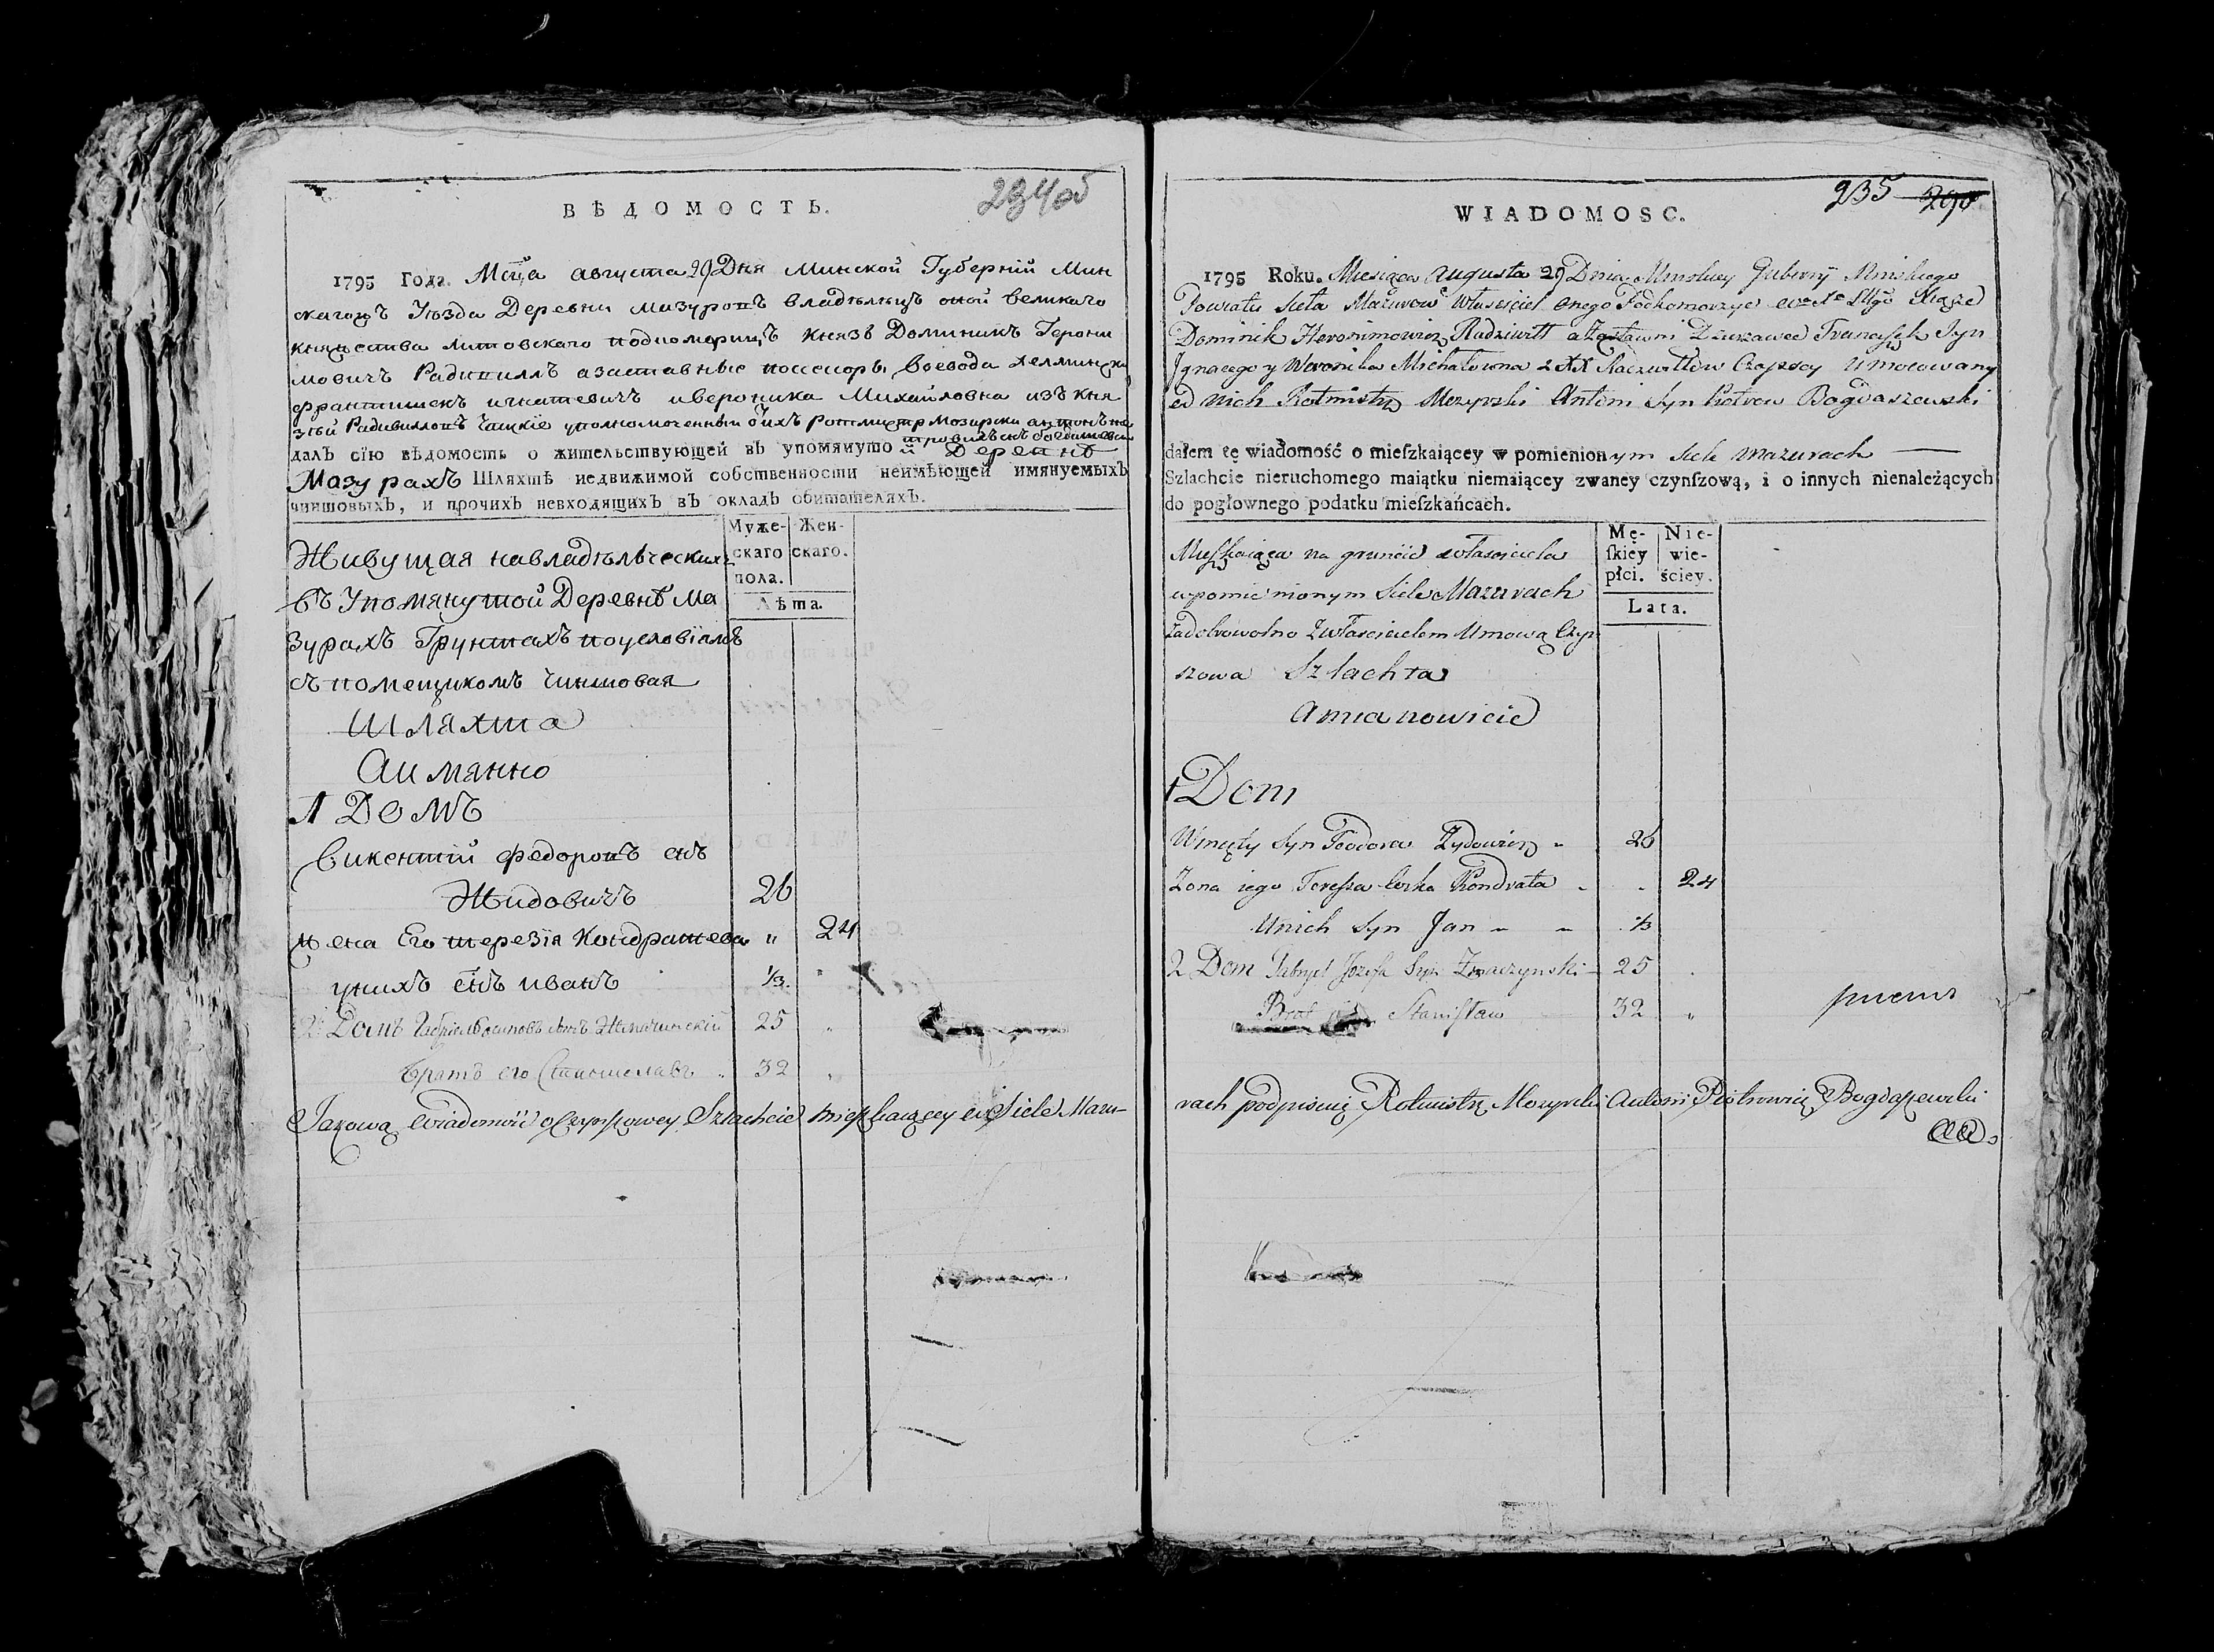 ВѢДОМОСТЬ.
234об
1795 Года. Мсца августа 29 Дня Минской Губерніи Мин
скагожъ Уѣзда Деревни Мазуровъ владѣлецъ оной великаго
княжества литовскаго подкоморицъ князь Доминикъ Герони
мовичъ Радивиллъ а заставные посессоры воевода хелмински
францишекъ игнатевичъ и вероника Михайловна изъ кня
зей Радивилловъ Чапскіе уполномоченный отъ ихъ Ротмистр Мозырски антонъ
далъ сїю вѣдомость о жительствующей въ упомянутой Деревнѣ
Мазурахъ Шляхтѣ недвижимой собственности неимѣющей имянуемыхъ
чиншовыхъ, и прочихъ невходящихъ въ окладъ обитателяхъ.
Муже- Жен-
скаго скаго.
пола.
Лѣта.
Живущая на владѣлческихъ
въ Упомянутой Деревнѣ Ма
зурахъ Грунтахъ по условіамъ
съ помещикомъ чиншовая
Шляхта
А имянно
1 Домъ
Викентій федоровъ снъ
Жидовичъ 26
жена Его терезїя Кондратева " 24
у нихъ снъ иванъ 1/3. "
2 Домъ Габріель Осиповъ снъ 25 "
братъ его Станиславъ 32 "
Takową wiadomość o czynszowey Szlachcie mieszkaiącey w Siele Mazu-
WIADOMOSC.
235 290
1795 Roku. Miesiąca Augusta 29 Dnia Minskiey Guberny Minskiego
Powiatu Sieła Mazurow Właściciel onego Podkomorzyc Xiąże
Dominik Heronimowicz Radziwiłł a Zastawni Dzierzawce Franciszek Syn
Ignacego y Weronika Michałowna z XX Radziwiłłow Czapscy Umocowany
od nich Rotmistrz Mozyrski Antoni Syn Piotrow Bogdaszewski
dałem tę wiadomość o mieſzkaiącey w pomienionym Siele Mazurach
Szlachcie nieruchomego maiątku niemaiącey zwaney czynſzową, i o innych nienależących
do pogłownego podatku mieſzkańcach.
Mę- Nie-
ſkiey wie-
płci. ściey.
Lata.
Mieszkaiąca na gruncie własciciela
w pomienionym Siele Mazurach
za dobrowolno z włascicielem Umową Czyn
szowa Szlachta
A mianowicie
1 Dom
Wincęty Syn Teodora Żydowicz 26
Zona iego Teressa Corka Kondrata 24
U nich Syn Jan 1/3
2 Dom Gabryel Jozefa Syn 25
Brat Stanisław 32 "
rach podpisuię Rotmistrz Mozyrski Antoni Piotrowicz Bogdaszewski